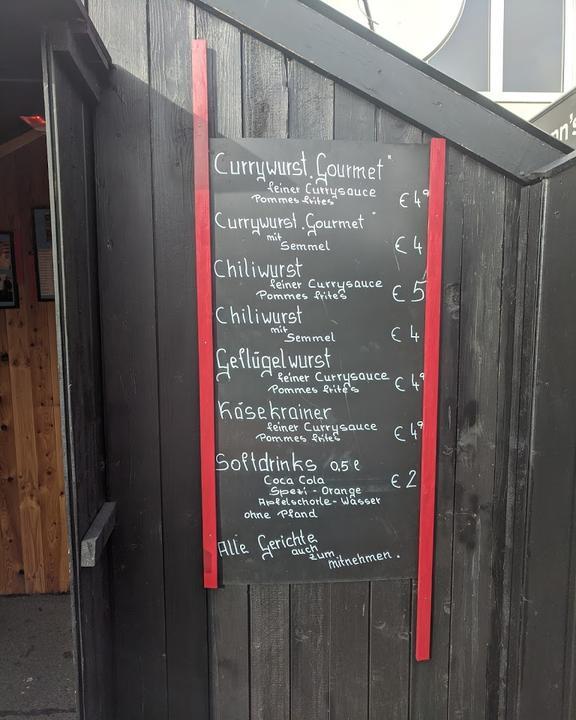 Currywurst "Gourmet"
feiner Currysauce
Pommes frites
€ 4⁹
Currywurst "Gourmet"
mit
Semmel
€ 4
Chiliwurst
feiner Currysauce
Pommes frites
€ 5
Chiliwurst
mit
Semmel
€ 4
Geflügelwurst
feiner Currysauce
Pommes frites
€ 4⁹
Käsekrainer
feiner Currysauce
Pommes frites
€ 4⁹
Softdrinks 0,5 l
Coca Cola
€ 2
Spezi - Orange
Apfelschorle - Wasser
ohne Pfand
Alle Gerichte
auch
zum
mitnehmen.